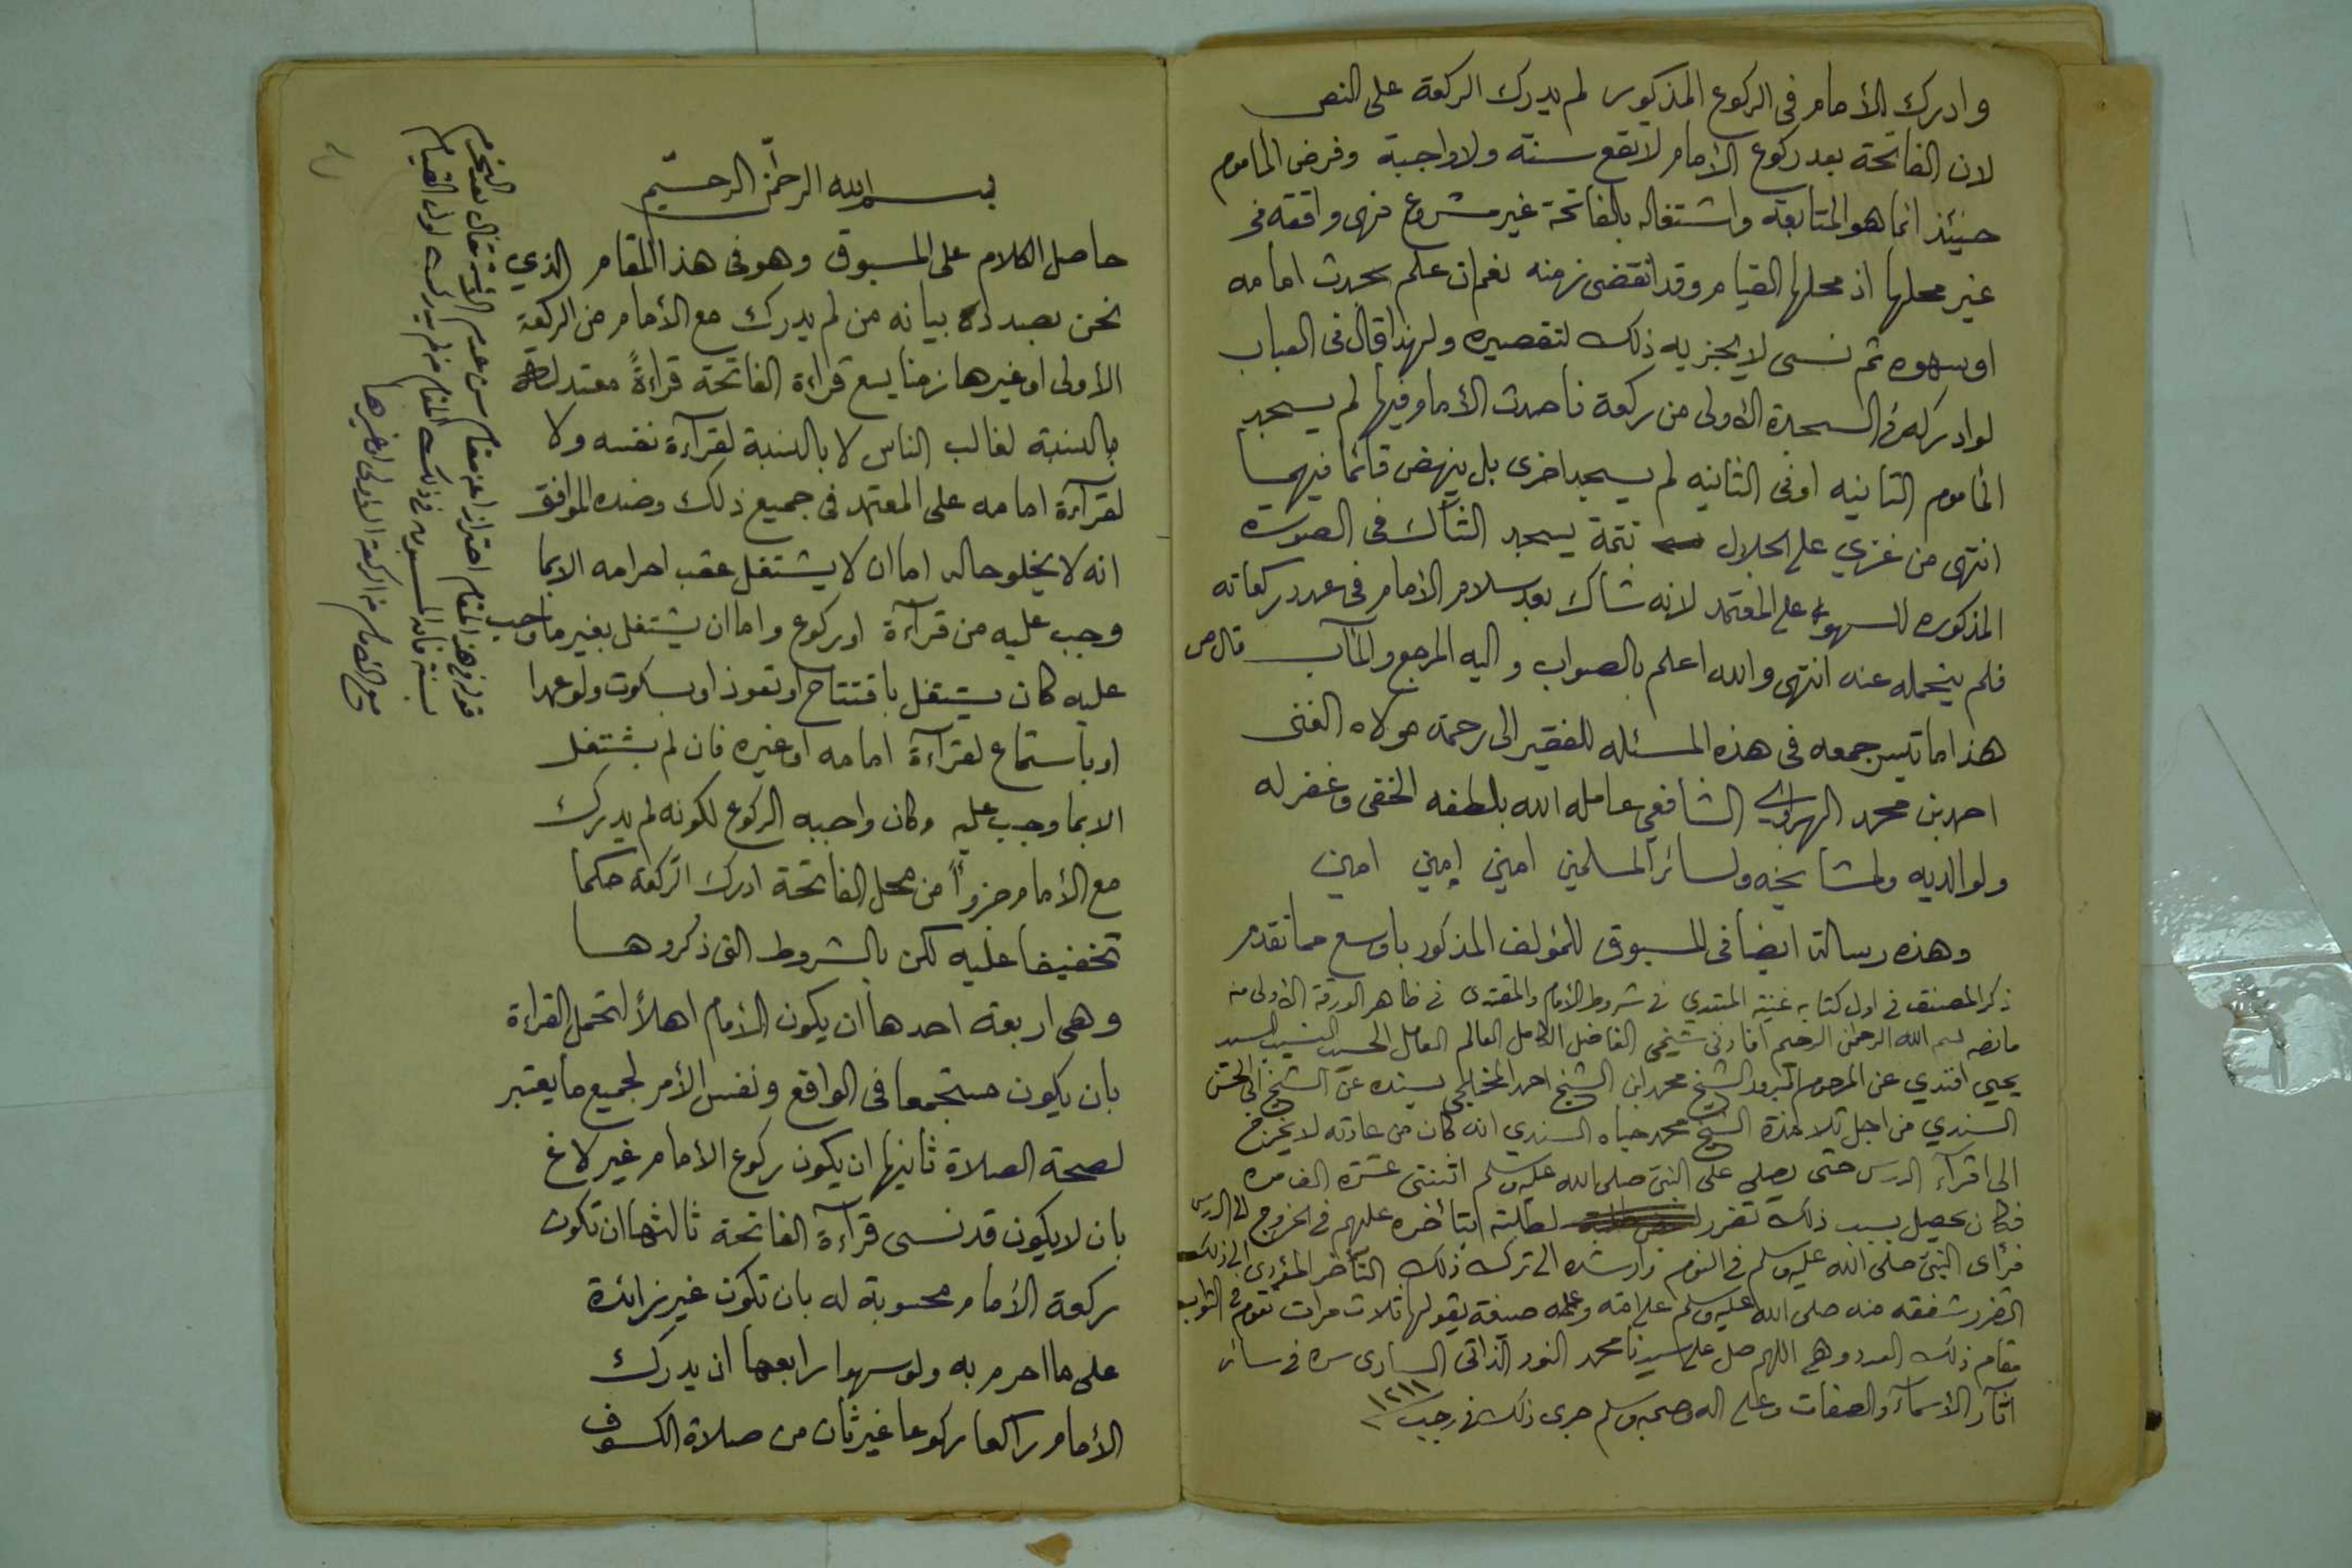 وادرك الأمام فى الركوع المذكور لم يدرك الركعة على النص
لان الفاتحة بعد ركوع الأمام لا تقع سنة ولا واجبة وفرض المأموم
حينئذ انما هو المتابعة واشتغاله بالفاتحة غير مشروع فهى واقعة فى
غير محلها اذ محلها القيام وقد انقضى زمنه نعم ان علم بحدث امامه
او سهوه ثم نسى لا يجزيه ذلك لتقصيره ولهذا قال فى العباب
لو ادركه فى السجدة الاولى من ركعة فاحدث الأمام فيها لم يسجد
المأموم الثانيه او فى الثانيه لم يسجد اخرى بل ينهض قائما فيهما
انتهى من عزي على الجلال تتمة يسجد الشاك فى الصورة
المذكوره للسهو على المعتمد لانه شاك بعد سلام الأمام فى عدد ركعاته
فلم يتحمله عنه انتهى والله اعلم بالصواب واليه المرجع والمآب قال ص
هذا ما تيسر جمعه فى هذه المسئله للفقير الى رحمة مولاه الغنى
احمد بن محمد الهراوي الشافعي عامله الله بلطفه الخفى وغفر له
ولوالديه ولمشايخه ولسائر المسلمين امين امين امين
وهذه رسالة ايضا فى المسبوق للمؤلف المذكور باوسع مما تقدم
ذكر المصنف فى اول كتابه غنية المبتدي فى شروط الأمام والمقتدى فى ظاهر الورقة الاولى منه
ما نصه بسم الله الرحمن الرحيم افادنى شيخى الفاضل الكامل العالم العامل الحسيب النسيب السيد
يحيى افندي عن المرحوم المبرور الشيخ محمد ابن الشيخ احمد المخللجي بسنده عن الشيخ ابى الحسن
السندي من اجل تلامذة الشيخ محمد حياه السندي انه كان من عادته لا يخرج
الى اقرآء الدرس حتى يصلى على النبى صلى الله عليه وسلم اثنتى عشرة الف مره
فكان يحصل بسبب ذلك تضرر لطلبته بتأخره عليهم فى الخروج الى الدرس
فرأى النبى صلى الله عليه وسلم فى النوم وارشده الى ترك ذلك التأخر المؤدى الى ذلك
التضرر شفقه منه صلى الله عليه وسلم على امته وعلمه صيغة يقولها ثلاث مرات تقوم فى الثواب
مقام ذلك العدد وهى اللهم صل على سيدنا محمد النور الذاتى السارى سره فى سائر
اثار الأسمآء والصفات وعلى اله وصحبه وسلم جرى ذلك فى رجب ١٢١١
بسم الله الرحمن الرحيم
حاصل الكلام على المسبوق وهو فى هذا المقام الذي
نحن بصدد بيانه من لم يدرك مع الأمام من الركعة
الأولى او غيرها زمنا يسع قراءة الفاتحة قراءةً معتدلة
بالنسبة لغالب الناس لا بالنسبة لقرآءة نفسه ولا
لقرآءة امامه على المعتمد فى جميع ذلك وضده الموافق
انه لا يخلو حاله اما ان لا يشتغل عقب احرامه الا بما
وجب عليه من قرآءة او ركوع واما ان يشتغل بغير ما وجب
عليه كان يشتغل بافتتاح او تعوذ او بسكوت ولو عمدا
او باستماع لقرآءة امامه او غيره فان لم يشتغل
الا بما وجب عليه وكان واجبه الركوع لكونه لم يدرك
مع الأمام جزواً من محل الفاتحة ادرك الركعة حكما
تخفيفا عليه لكن بالشروط التى ذكروها
وهى اربعة احدها ان يكون الأمام اهلاً لتحمل القراءة
بان يكون مستجمعا فى الواقع ونفس الأمر لجميع ما يعتبر
لصحة الصلاة ثانيها ان يكون ركوع الأمام غير لاغ
بان لا يكون قد نسى قرآءة الفاتحة ثالثها ان تكون
ركعة الأمام محسوبة له بان تكون غير زائدة
على ما احرم به ولو سهوا رابعها ان يدرك
الأمام راكعا ركوعا غير ثان من صلاة الكسوف
قوله فى هذا المقام احترازا عن مقام سن عدم الاشتغال بعد التحرم
بسنة فان المسبوق فى ذلك المقام من لم يدرك اول القيام
مع الامام من الركعة الاولى او غيرها